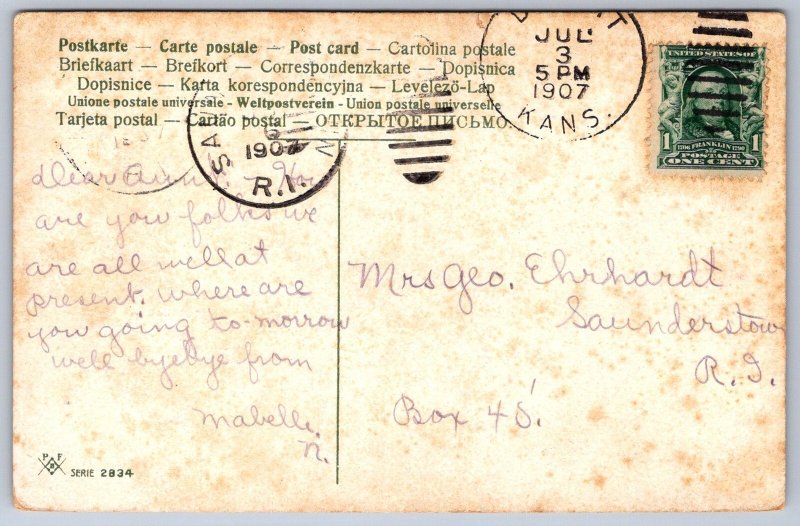 Postkarte — Carte postale — Post card — Cartolina postale
Briefkaart — Brefkort — Correspondenzkarte — Dopisnica
Dopisnice — Karta korespondencyjna — Levelező-Lap
Unione postale universale - Weltpostverein - Union postale universelle
Tarjeta postal — Cartão postal — ОТКРЫТОЕ ПИСЬМО.
JUL
3
5 PM
1907
KANS.
SAU
N
190
R.I.
UNITED STATES OF
1706 FRANKLIN 1790
1 POSTAGE 1
ONE CENT
Dear Aunt How
are you folks we
are all well at
present. Where are
you going to-morrow
well byebye from
Mabelle.
N.
Mrs Geo. Ehrhardt
Saunderstown
R.I.
Box 45.
P F
B
SERIE 2834